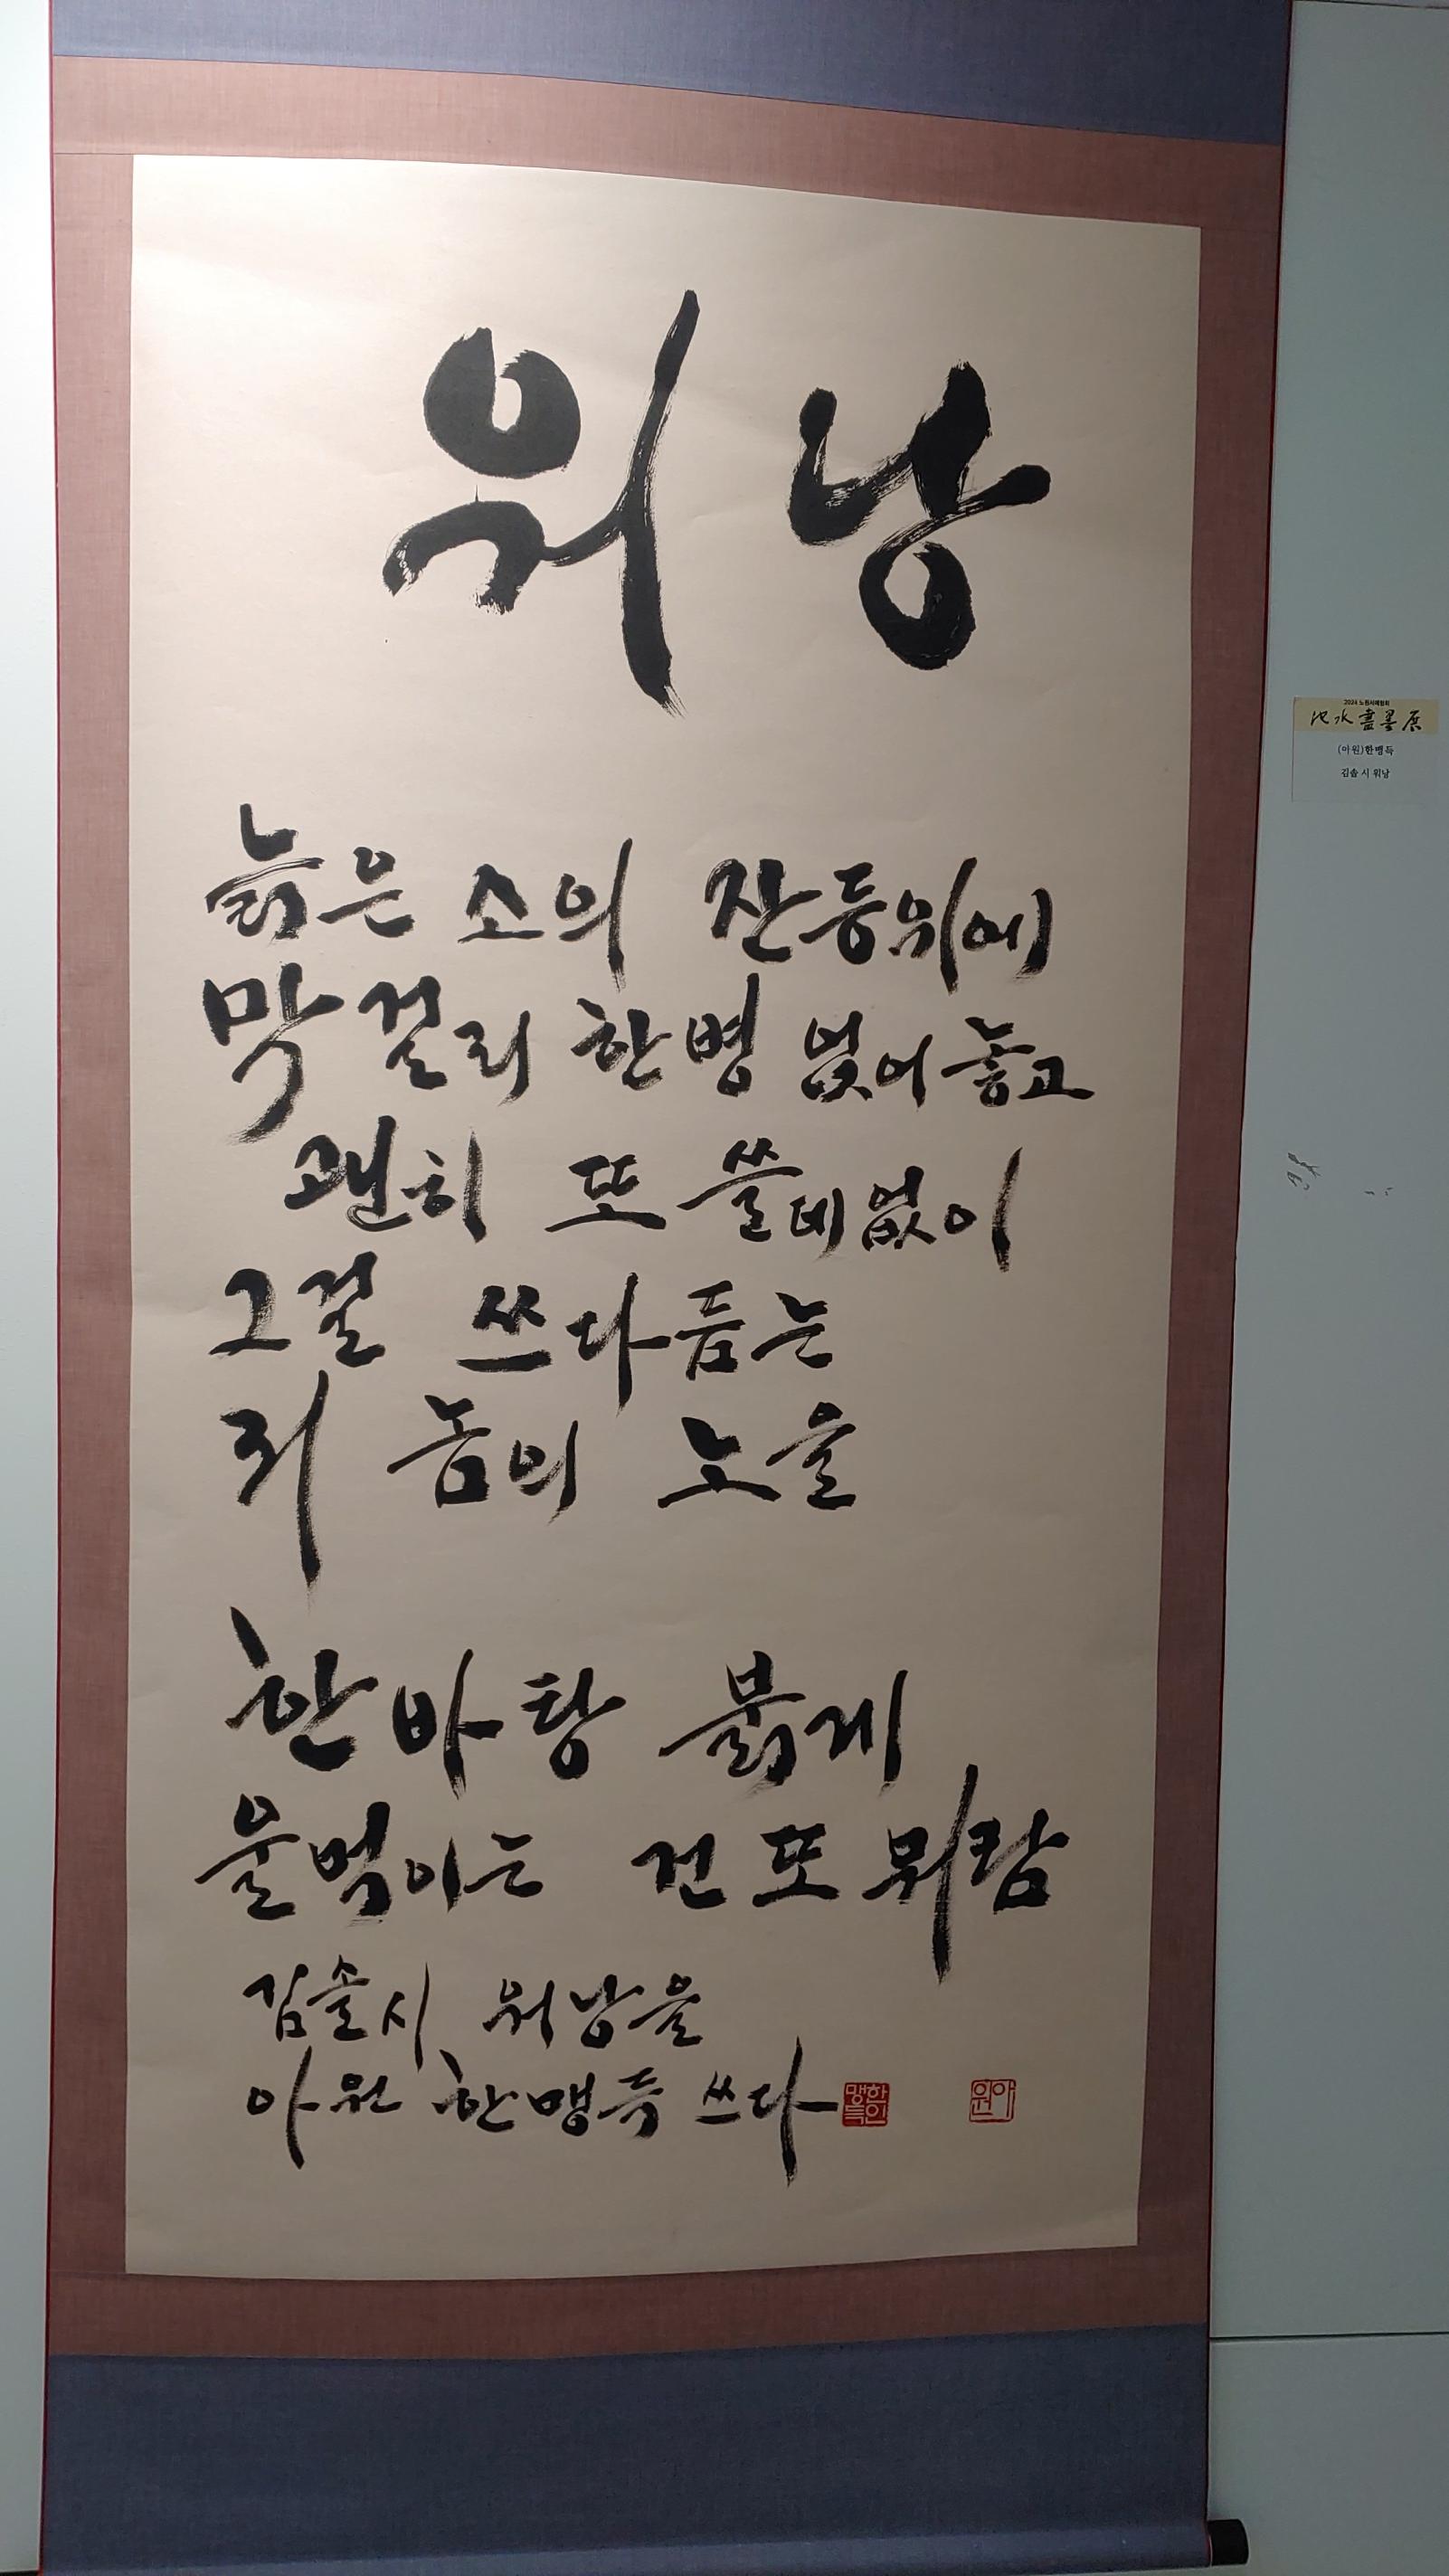 워낭
늙은 소의 잔등위에
막걸리 한병 얹어놓고
괜히 또 쓸데없이
그걸 쓰다듬는
뒤 놈의 노을
한바탕 붉게
울먹이는 건 또 뭐람
김솔시 워낭을
아원 한맹득 쓰다
한인맹득
아원
2024 노원서예협회
池水盡墨展
(아원)한맹득
김솔 시 워낭